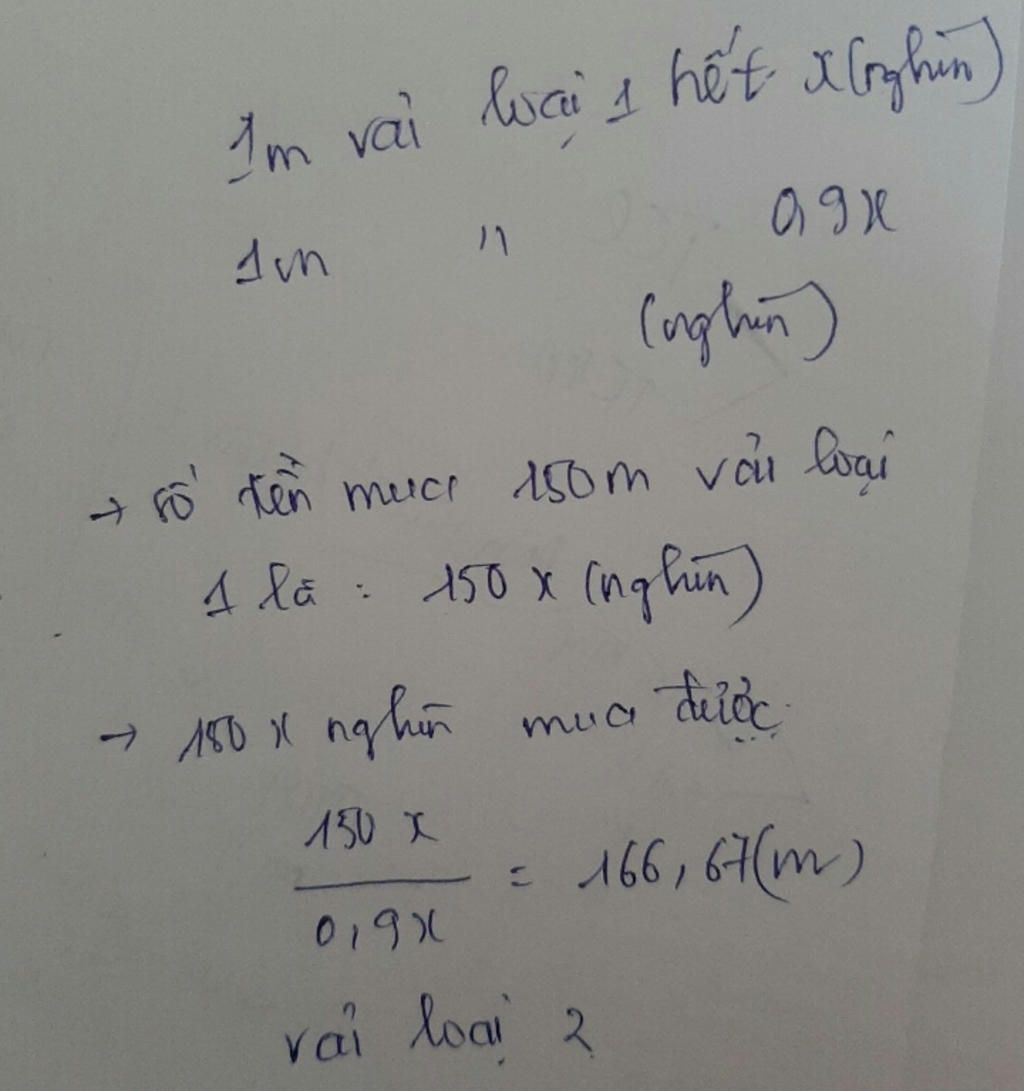 1m vải loại 1 hết x (nghìn)
1m " 0,9x
(nghìn)
→ số tiền mua 150m vải loại
1 là : 150 x (nghìn)
→ 150 x nghìn mua được
150 x
0,9x
= 166,67(m)
vải loại 2